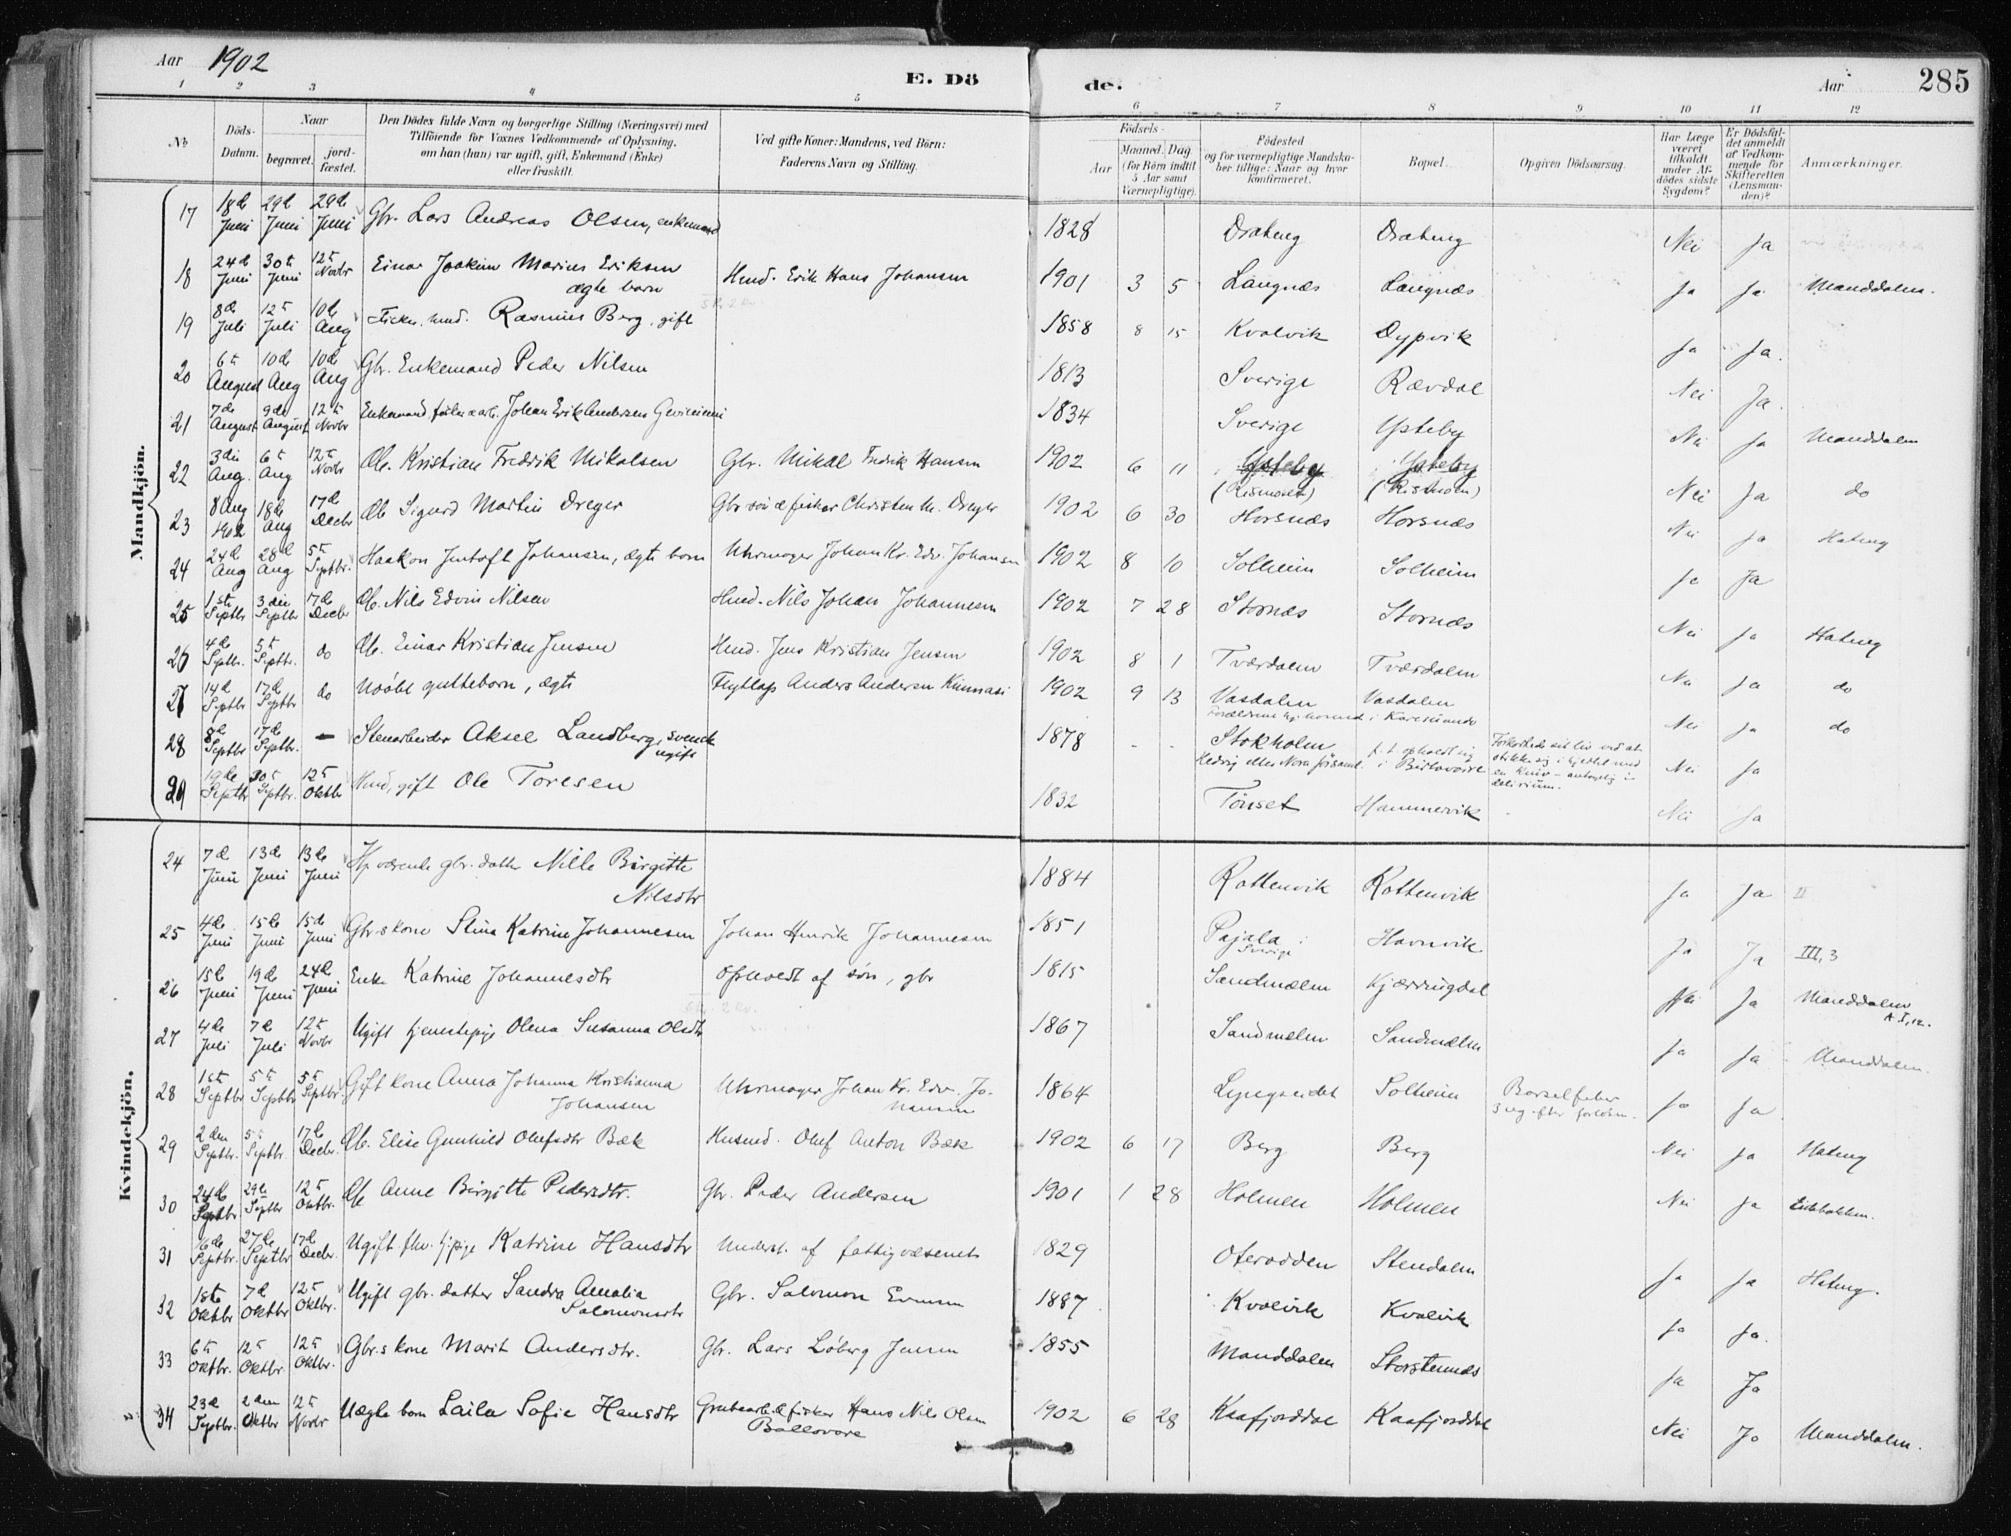 Aar 1902 E. Dö de. Aar 285
1 2 3 4 5 6 7 8 9 10 11 12
No Döds-Datum. Naar begravet. jord-fæstet. Den Dödes fulde Navn og borgerlige Stilling (Næringsvei) med Tilföiende for Voxnes Vedkommende af Oplysning, om han (hun) var ugift, gift, Enkemand (Enke) eller fraskilt. Ved gifte Koner: Mandens, ved Börn: Faderens Navn og Stilling. Födsels- Aar Maaned. Dag (for Börn indtil 5 Aar samt Værnepligtige). Födested og for værnepligtige Mandska-ber tillige: Naar og hvor konfirmeret. Bopæl. Opgiven Dödsaarsag. Har Læge været tilkaldt under Af-dödes sidste Sygdom? Er Dödsfal-det anmeldt af Vedkom-mende for Skifteretten (Lensman-den)? Anmærkninger.
Mandkjön.
17 18de Juni 29de Juni 29de Juni Gbr. Lars Andreas Olsen, enkemand 1828 Nei Ja
18 24de Juni 30te Juni 12te Novbr Einar Joakim Marius Eriksen ægte barn Husmd. Erik Hans Johansen 1901 3 5 Langnæs Langnæs Ja Ja Manddalen.
19 8de Juli 12te Juli 10de Aug Rasmus Berg, gift 1858 8 15 Kvalvik Dypvik Ja Ja.
20 6te August 10de Aug 10de Aug Gbr. Enkemand Peder Nilsen 1813 Sverige Rævdal Nei Ja.
21 7de August 9de August 12te Novbr Enkemand Johan Erik Andersen 1834 Sverige Ysteby Nei Ja Manddalen
22 3die Aug. 6te Aug 12te Novbr Æb. Kristian Fredrik Mikalsen Gbr. Mikal Fredrik Hansen 1902 6 11 Ysteby (Rismoen) Ysteby (Rismoen) Nei Ja do
23 8 Aug 1902 18de Aug 17de Decbr Æb Sigurd Martin Dreyer Christen M. Dreyer 1902 6 30 Horsnæs Horsnæs Nei Ja Hateng
24 24de Aug 28de Aug 5te Septbr. Haakon Johansen, ægte barn Uhrmager Johan Kr. Edv. Johansen 1902 8 10 Solheim Solheim Ja Ja
25 1ste Septbr 3die Septbr 17de Decbr Æb. Nils Edvin Nilsen Husmd. Nils Johan Johannesen 1902 7 28 Stornæs Stornæs Nei Ja Hateng
26 4de Septbr. 5te Septbr. do Æb. Einar Kristian Jensen Husmd. Jens Kristian Jensen 1902 8 1 Tværdalen Tværdalen Nei Ja do
27 14de Septbr 17de Septbr do Udøbt gutteborn, ægte Anders Andersen 1902 9 13 Vasdalen Vasdalen Nei Ja do
28 8de Septbr 17de Septbr. — Stenarbeider Aksel Landberg, svensk ugift 1878 - - Stokholm Nei Ja
29 19de Septbr 30te Septbr. 12te Oktbr Husmd, gift Ole Toresen 1832 Tönset Hammervik Nei Ja
Kvindekjön.
24 7de Juni 13de Juni 13de Juni gbr. datter Nille Birgitte Nilsdtr 1884 Rottenvik Rottenvik Ja Ja II
25 4de Juni 15de Juni 15de Juni Gbr-s kone Stina Katrine Johannesen Johan Henrik Johannesen 1851 Pajala Sverige Havnvik Ja Ja III, 3
26 15de Juni 19de Juni 24de Juni Enke Katrine Johannesdtr Opholdt af søn, gbr 1815 Sandmælen Kjærringdal Nei Ja Manddalen
27 4de Juli 7de Juli 12te Novbr Ugift tjenestepige Olena Susanna Olsdtr 1867 Sandmælen Sandmælen Ja Ja Manddalen.
28 1ste Septbr 5te Septbr 5te Septbr. Gift kone Anna Johanna Kristianna Johansen Uhrmager Johan Kr. Edv. Johansen 1864 Lyngseidet Solheim Barselfeber Ja Ja
29 2den Septbr. 5te Septbr 17de Decbr. Æb. Elise Gunhild Olufsdtr Bæk Husmd. Oluf Anton Bæk 1902 6 17 Berg Berg Nei Ja Hateng
30 24de Septbr 29de Septbr 12te Oktbr. Æb Anne Birgitte Pedersdtr. Gbr. Peder Andersen 1901 1 28 Holmen Holmen Nei Ja
31 16de Septbr. 27de Septbr 17de Decbr. Ugift Katrine Hansdtr Underst. af fattigvæsenet 1829 Oteradden Stendalen Ja Ja Hateng.
32 1ste Oktbr 7de Oktbr 12te Oktbr. Ugift gbr. datter Sandra Amalia Salomonsdtr Gbr. Salomon Evensen 1887 Kvalvik Kvalvik Ja Ja.
33 6te Oktbr. 12te Oktbr. 12te Oktbr. Gbr.s kone Marit Andersdtr. Gbr. Lars Løberg Jensen 1855 Manddalen Storstennæs Ja Ja
34 23de Septbr. 2den Oktbr 12te Novbr Uægte barn Laila Sofie Hansdtr Grubearb. & fisker Hans Nils Olsen Ballovare 1902 6 28 Kaafjorddal Kaafjorddal Nei Ja Manddalen.